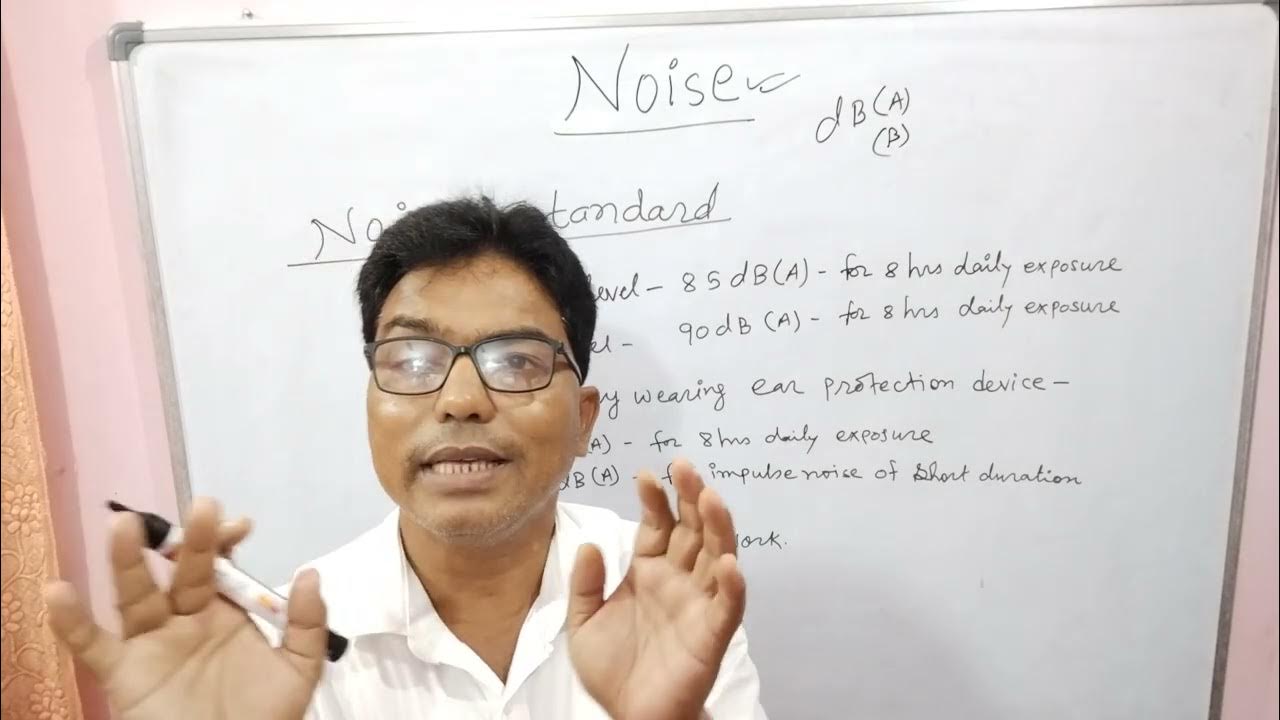 Noise
dB (A)
(B)
standard
level - 85 dB(A) - for 8 hrs daily exposure
90 dB (A) - for 8 hrs daily exposure
wearing ear protection device -
(A) - for 8 hrs daily exposure
dB (A) - impulse noise of short duration